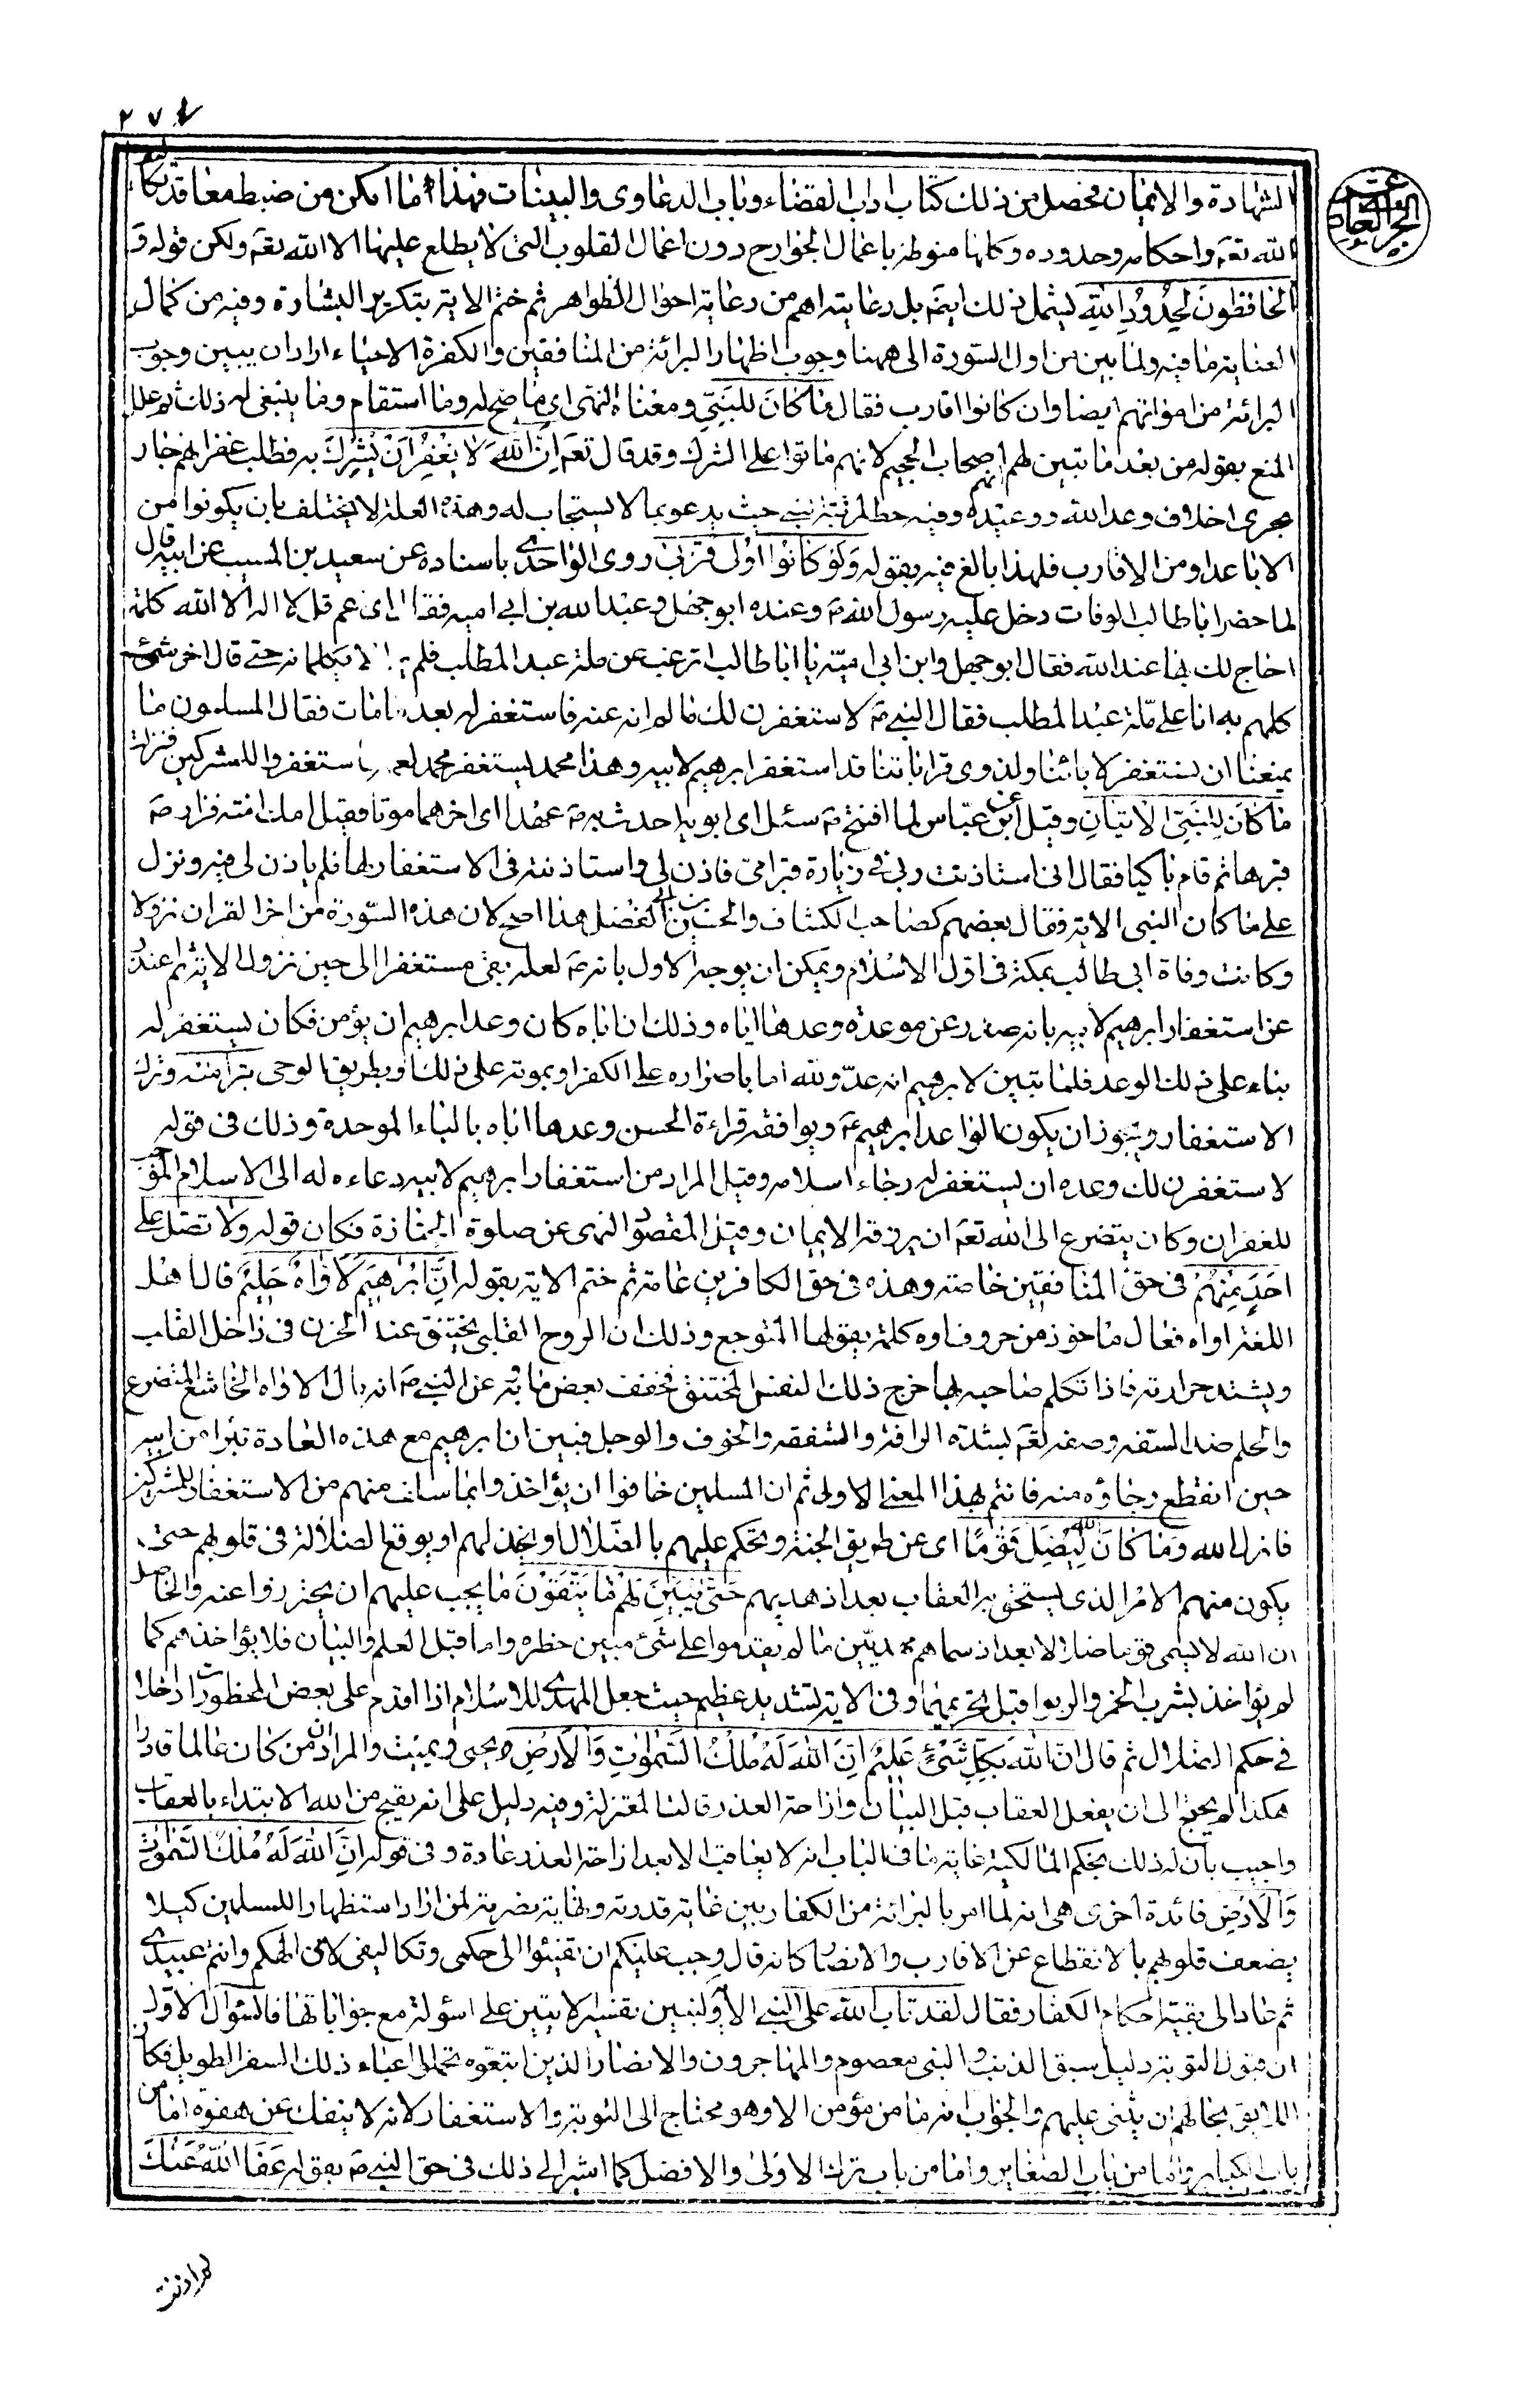 الشهادة والايمان محصل من ذلك كتاب اداب القضاء وباب الدعاوى والبينات فهذا اما امكن من ضبط معاقد تكاليف
الله تعم واحكامه وحدوده وكلها منوطة باعمال الجوارح دون اعمال القلوب التى لا يطلع عليها الا الله تعم ولكن قوله و
الحافظون لحدود الله يشمل ذلك ايضم بل رعايته اهم من رعاية احوال الظواهر ثم ختم الاية بتكرير البشارة وفيه من كمال
العناية ما فيه ولما بين من اول السورة الى ههنا وجوب اظهار البرائة من المنافقين والكفرة الاحياء اراد ان يبين وجوب
البرائة من امواتهم ايضا وان كانوا اقارب فقال ما كان للنبي ومعناه النهى اى ما صح له وما استقام وما ينبغى له ذلك ثم علل
المنع بقوله من بعد ما تبين لهم انهم اصحاب الجحيم لانهم ماتوا على الشرك وقد قال تعم ان الله لا يغفر ان يشرك به فطلب غفرانهم جار
مجرى اخلاف وعد الله ووعيده وفيه حط لمرتبة نبيه حيث يدعو بما لا يستجاب له وهذه العلة لا يختلف بان يكونوا من
الاباعد او من الاقارب فلهذا بالغ فيه بقوله ولو كانوا اولى قربى روى الواحدى باسناده عن سعيد بن المسيب عن ابيه قال
لما حضر ابا طالب الوفات دخل عليه رسول الله ص وعنده ابو جهل وعبد الله بن ابى اميه فقال اى عم قل لا اله الا الله كلمة
احاج لك بها عند الله فقال ابو جهل وابن ابى اميّة يا ابا طالب اترغب عن ملة عبد المطلب فلم يزالا يكلمانه حتى قال اخر شئ
كلهم به انا على ملّة عبد المطلب فقال النبي ص لاستغفرن لك ما لم انه عنه فاستغفر له بعد ما مات فقال المسلمون ما
يمنعنا ان نستغفر لابائنا ولذوى قراباتنا قد استغفر ابرهيم لابيه وهذا محمد يستغفر محمد لعمه فاستغفروا للمشركين فنزلت
ما كان للنبي الايتان وقيل عن ابن عباس لما افتتح ص سئل اى ابويه احدث به ص عهدا اى اخرهما موتا فقيل امك امنة فزار ص
قبرها ثم قام باكيا فقال انى استاذنت ربى فى زيارة قبر امى فاذن لى واستاذنته فى الاستغفار لها فلم ياذن لى فيه ونزل
على ما كان النبى الاية فقال بعضهم كصاحب الكشاف والحسين بن ابى الفضل هذا اصح لان هذه السورة من اخر القران نزولا
وكانت وفاة ابى طالب بمكة فى اوّل الاسلام ويمكن ان يوجه الاول بانه ص لعله بقى مستغفرا الى حين نزول الاية ثم اعتذر
عن استغفار ابرهيم لابيه بانه صدر عن موعدة وعدها اياه وذلك ان اباه كان وعد ابرهيم ان يؤمن فكان يستغفر له
بناء على ذلك الوعد فلما تبين لابرهيم انه عدو لله اما باصراره على الكفر او بموته على ذلك او بطريق الوحى تبرأ منه وترك
الاستغفار ويجوز ان يكون الواعد ابرهيم ع ويوافقه قراءة الحسن وعدها اباه بالباء الموحدة وذلك فى قوله
لاستغفرن لك وعده ان يستغفر له رجاء اسلامه وقيل المراد من استغفار ابرهيم لابيه دعاءه له الى الاسلام الموجب
للغفران وكان يتضرع الى الله تعم ان يرزقه الايمان وقيل المقصود النهى عن صلوة الجنازة فكان قوله ولا تصل على
احد منهم فى حق المنافقين خاصة وهذه فى حق الكافرين عامة ثم ختم الاية بقوله ان ابرهيم لاواه حليم قال اهل
اللغة اواه فعال ماخوذ من حروف اوه كلمة يقولها المتوجع وذلك ان الروح القلبى يختنق عند الحزن فى داخل القلب
ويشتد حرارته فاذا تكلم صاحبه بها خرج ذلك النفس المختنق فخفف بعض ما به عن النبي ص انه قال الاواه الخاشع المتضرع
والحلم ضد السفه وصفه تعم بشدة الرافة والشفقه والخوف والوجل فبين ان ابرهيم مع هذه العادة تبرأ من ابيه
حين انقطع رجاؤه منه فانتم بهذا المعنى الاولى ثم ان المسلمين خافوا ان يؤاخذوا بما سلف منهم من الاستغفار للمشركين
فانزل الله وما كان الله ليضل قوما اى عن طريق الجنة ويحكم عليهم بالضلال او يخذلهم او يوقع الضلالة فى قلوبهم حتى
يكون منهم الامر الذى يستحق به العقاب بعد اذ هديهم حتى يبين لهم ما يتقون ما يجب عليهم ان يحترزوا عنه والحاصل
ان الله لا يسمى قوما ضلالا بعد اذ سماهم مهديّين ما لم يقدموا على شئ مبين حظره واما قبل العلم والبيان فلا يؤاخذهم كما
لم يؤاخذ بشرب الخمر والربوا قبل تحريمهما وفى الاية تشديد عظيم حيث جعل المهدى للاسلام اذا اقدم على بعض المحظورات داخلا
فى حكم الضلال ثم قال ان الله بكل شئ عليم ان الله له ملك السموات والارض يحيى ويميت والمراد ان من كان عالما قادرا
هكذا لم يحتج الى ان يفعل العقاب قبل البيان وازاحة العذر قالت المعتزلة وفيه دليل على انه يقبح من الله الابتداء بالعقاب
واجيب بان له ذلك بحكم المالكية غاية ما فى الباب انه لا يعاقب الا بعد ازاحة العذر عادة وفى قوله ان الله له ملك السموات
والارض فائدة اخرى هى انه لما امر بالبرائة من الكفار بين غاية قدرته ونهاية نصرته لمن اراد استظهارا للمسلمين كيلا
يضعف قلوبهم بالانقطاع عن الاقارب والانصار كانه قال وجب عليكم ان تفيئوا الى حكمى وتكاليفى لانى الهكم وانتم عبيدى
ثم عاد الى بقية احكام الكفار فقال لقد تاب الله على النبي الاية ولنبين تفسير الايتين على اسؤلة مع جواباتها فالسؤال الاوّل
ان قبول التوبة دليل سبق الذنب والنبى معصوم والمهاجرون والانصار الذين اتبعوه تحملوا اعباء ذلك السفر الطويل فكان
اللايق بحالهم ان يثنى عليهم والجواب انه ما من مؤمن الا وهو محتاج الى التوبة والاستغفار لانه لا ينفك عن هفوة اما من
باب الكباير واما من باب الصغاير واما من باب ترك الاولى والافضل كما اشير الى ذلك فى حق النبي ص بقوله عفا الله عنك
لم اذنت